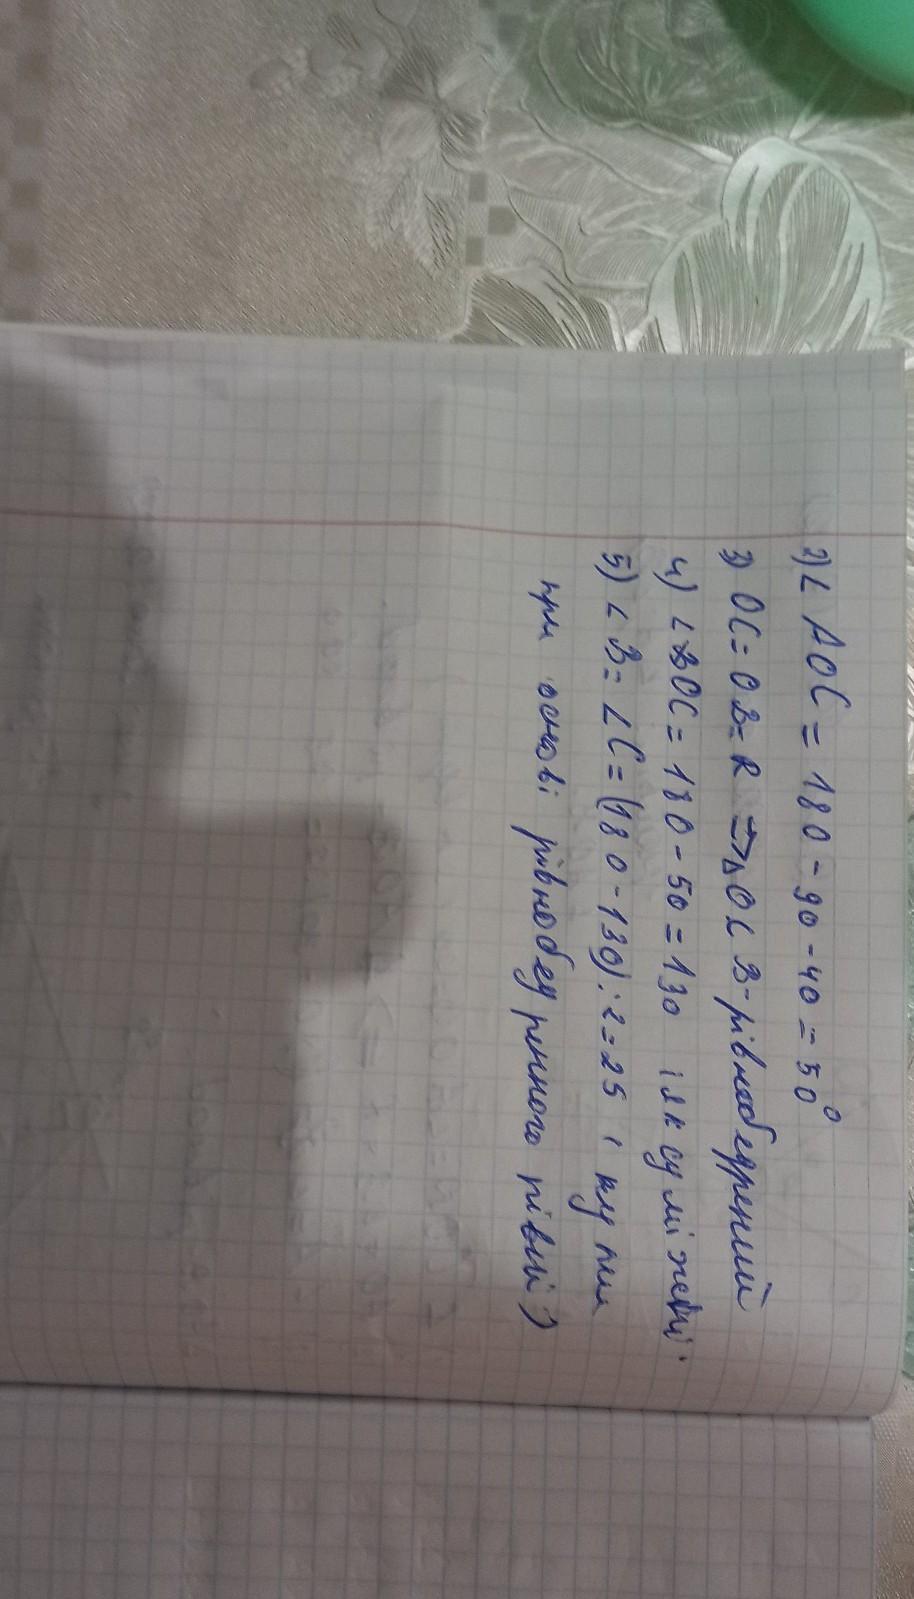 2) ∠ AOC = 180 - 90 - 40 = 50°
3) OC = OB = R => △ OCB - рівнобедрений
4) ∠ BOC = 180 - 50 = 130 ( як суміжні.
5) ∠ B = ∠ C = (180 - 130) : 2 = 25 ( кути
при основі рівнобедренного рівні )